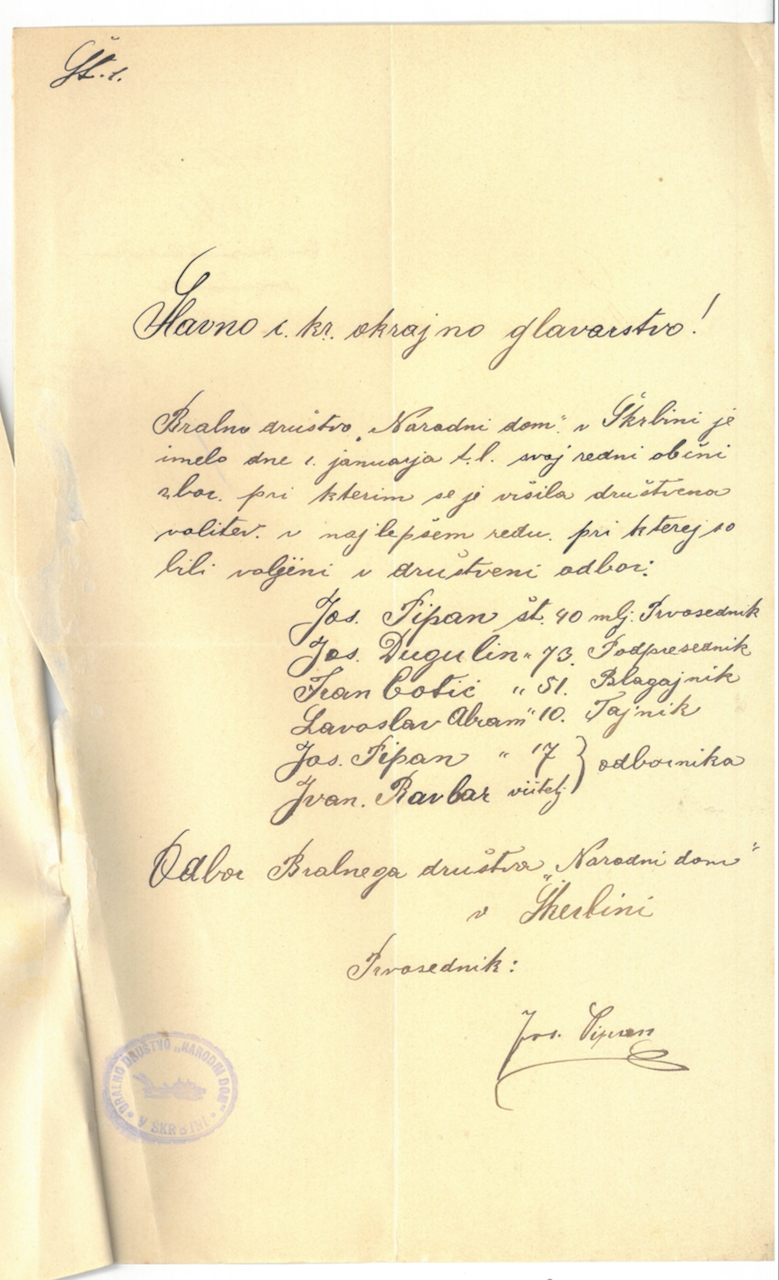 Št. 1.
Slavno c. kr. okrajno glavarstvo!
Bralno društvo „Narodni dom" v Škrbini je
imelo dne 1. januarja t.l. svoj redni občni
zbor. pri kterim se je višila društvena
volitev. v najlepšem redu. pri kterej so
bili voljeni v društveni odbor:
Jos. Pipan št. 40 mlj. Prvosednik
Jos. Dugulin „ 73. Podpresednik
Fran Cotič „ 51. Blagajnik
Lavoslav Abram „ 10. Tajnik
Jos. Pipan „ 17 } odbornika
Ivan. Ravbar učitelj
Odbor Bralnega društva „Narodni dom"
v Škerbini
Prvosednik:
Jos. Pipan
BRALNO DRUŠTVO „NARODNI DOM"
V SKRBINI